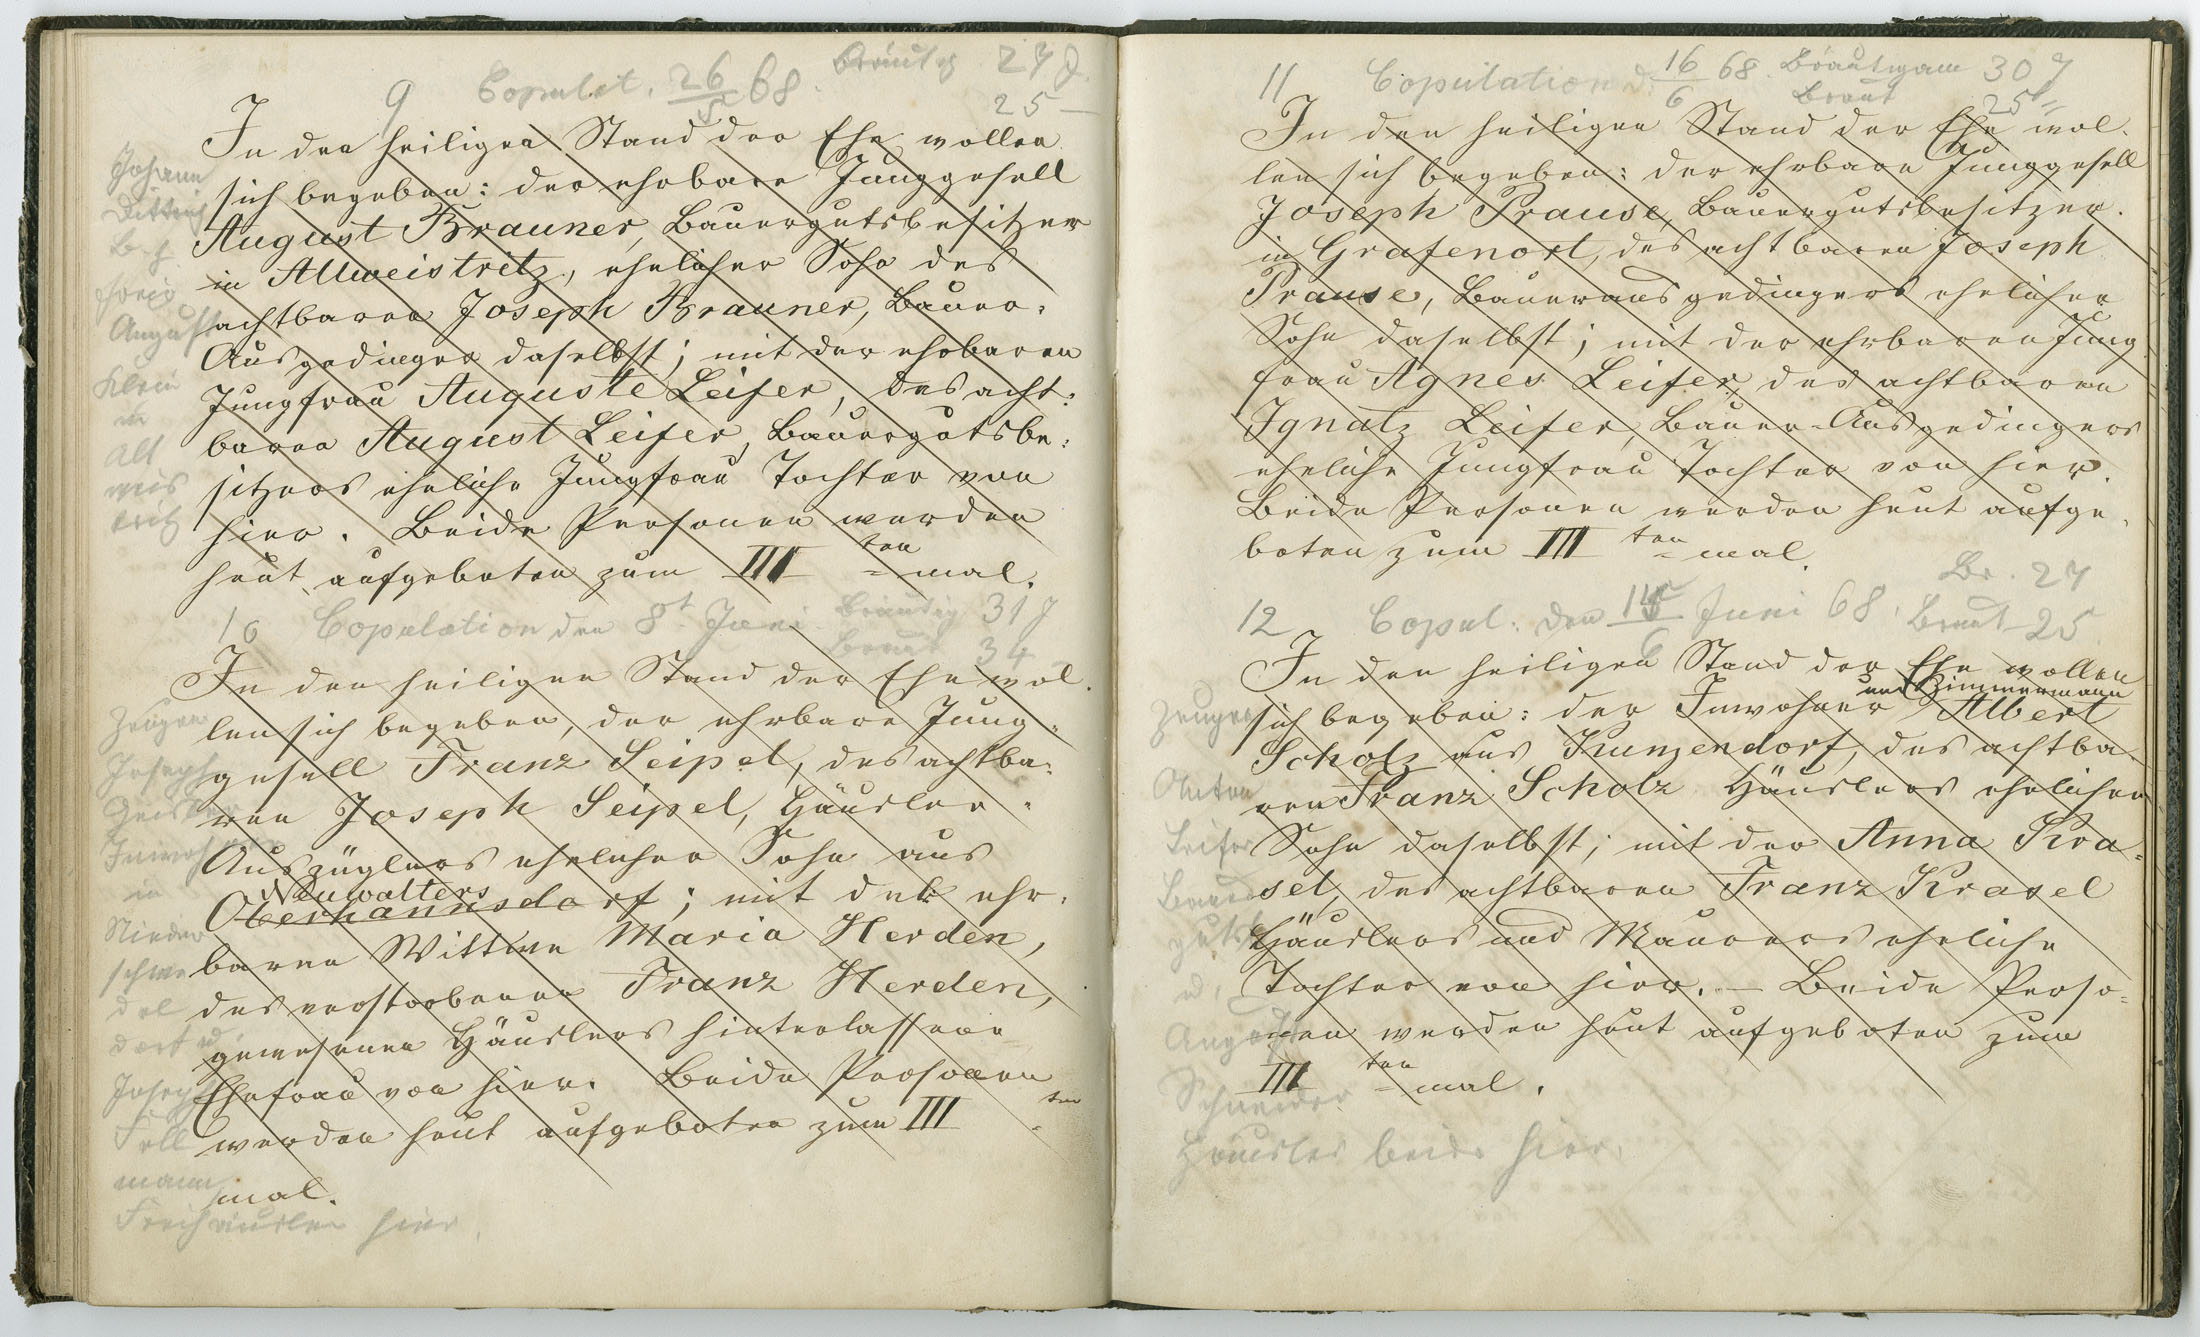 9 Copulat. 26/5 68. Bräutg 27 J.
25 —
In den heiligen Stand der Ehe wollen
sich begeben: der ehrbare Junggesell
August Brauner, Bauergutsbesitzer
in Altweistritz, ehelicher Sohn des
achtbaren Joseph Brauner, Bauer-
Ausgedinger daselbst; mit der ehrbaren
Jungfrau Auguste Leifer, des acht-
baren August Leifer, Bauergutsbe-
sitzers eheliche Jungfrau Tochter von
hier. Beide Personen werden
heut aufgeboten zum III ten mal.
Johann
Dittrich
August
Klein
in
Alt
weis
tritz
10 Copulation den 8t Juni Bräutig 31 J
Braut 34
In den heiligen Stand der Ehe wol-
len sich begeben, der ehrbare Jung-
gesell Franz Seipel, des achtba-
ren Joseph Seipel, Häusler-
Auszüglers ehelicher Sohn aus
Neuwalters
Oberhannsdorf; mit der ehr-
baren Wittwe Maria Herden,
des verstorbenen Franz Herden,
gewesenen Häuslers hinterlassene
Ehefrau von hier. Beide Personen
werden heut aufgeboten zum III ten
mal.
Zeugen
Joseph
in
Nieder
schwe
del
dorf u.
Joseph
Fell
mann
Freihäusler hier.
11 Copulation d. 16/6 68. Bräutigam 30 J
Braut 25 "
In den heiligen Stand der Ehe wol-
len sich begeben: der ehrbare Junggesell
Joseph Prause, Bauergutsbesitzer
in Grafenort, des achtbaren Joseph
Prause, Bauerausgedingers ehelicher
Sohn daselbst; mit der ehrbaren Jung
frau Agnes Leifer, des achtbaren
Ignatz Leifer, Bauer-Ausgedingers
eheliche Jungfrau Tochter von hier.
Beide Personen werden heut aufge-
boten zum III ten mal.
Br. 27
12 Copul: den Juni 68. Braut 25
In den heiligen Stand der Ehe wollen
und Zimmermann
sich begeben: der Inwohner Albert
Scholz aus Kunzendorf, des achtba-
ren Franz Scholz Häuslers ehelicher
Sohn daselbst; mit der Anna Kra-
sel, des achtbaren Franz Krasel
Häuslers und Maurers eheliche
Tochter von hier. — Beide Perso-
nen werden heut aufgeboten zum
III ten mal.
Zeugen
Anton
Leifer
Bauer
guts
u.
August
Schneider
Häusler beide hier.